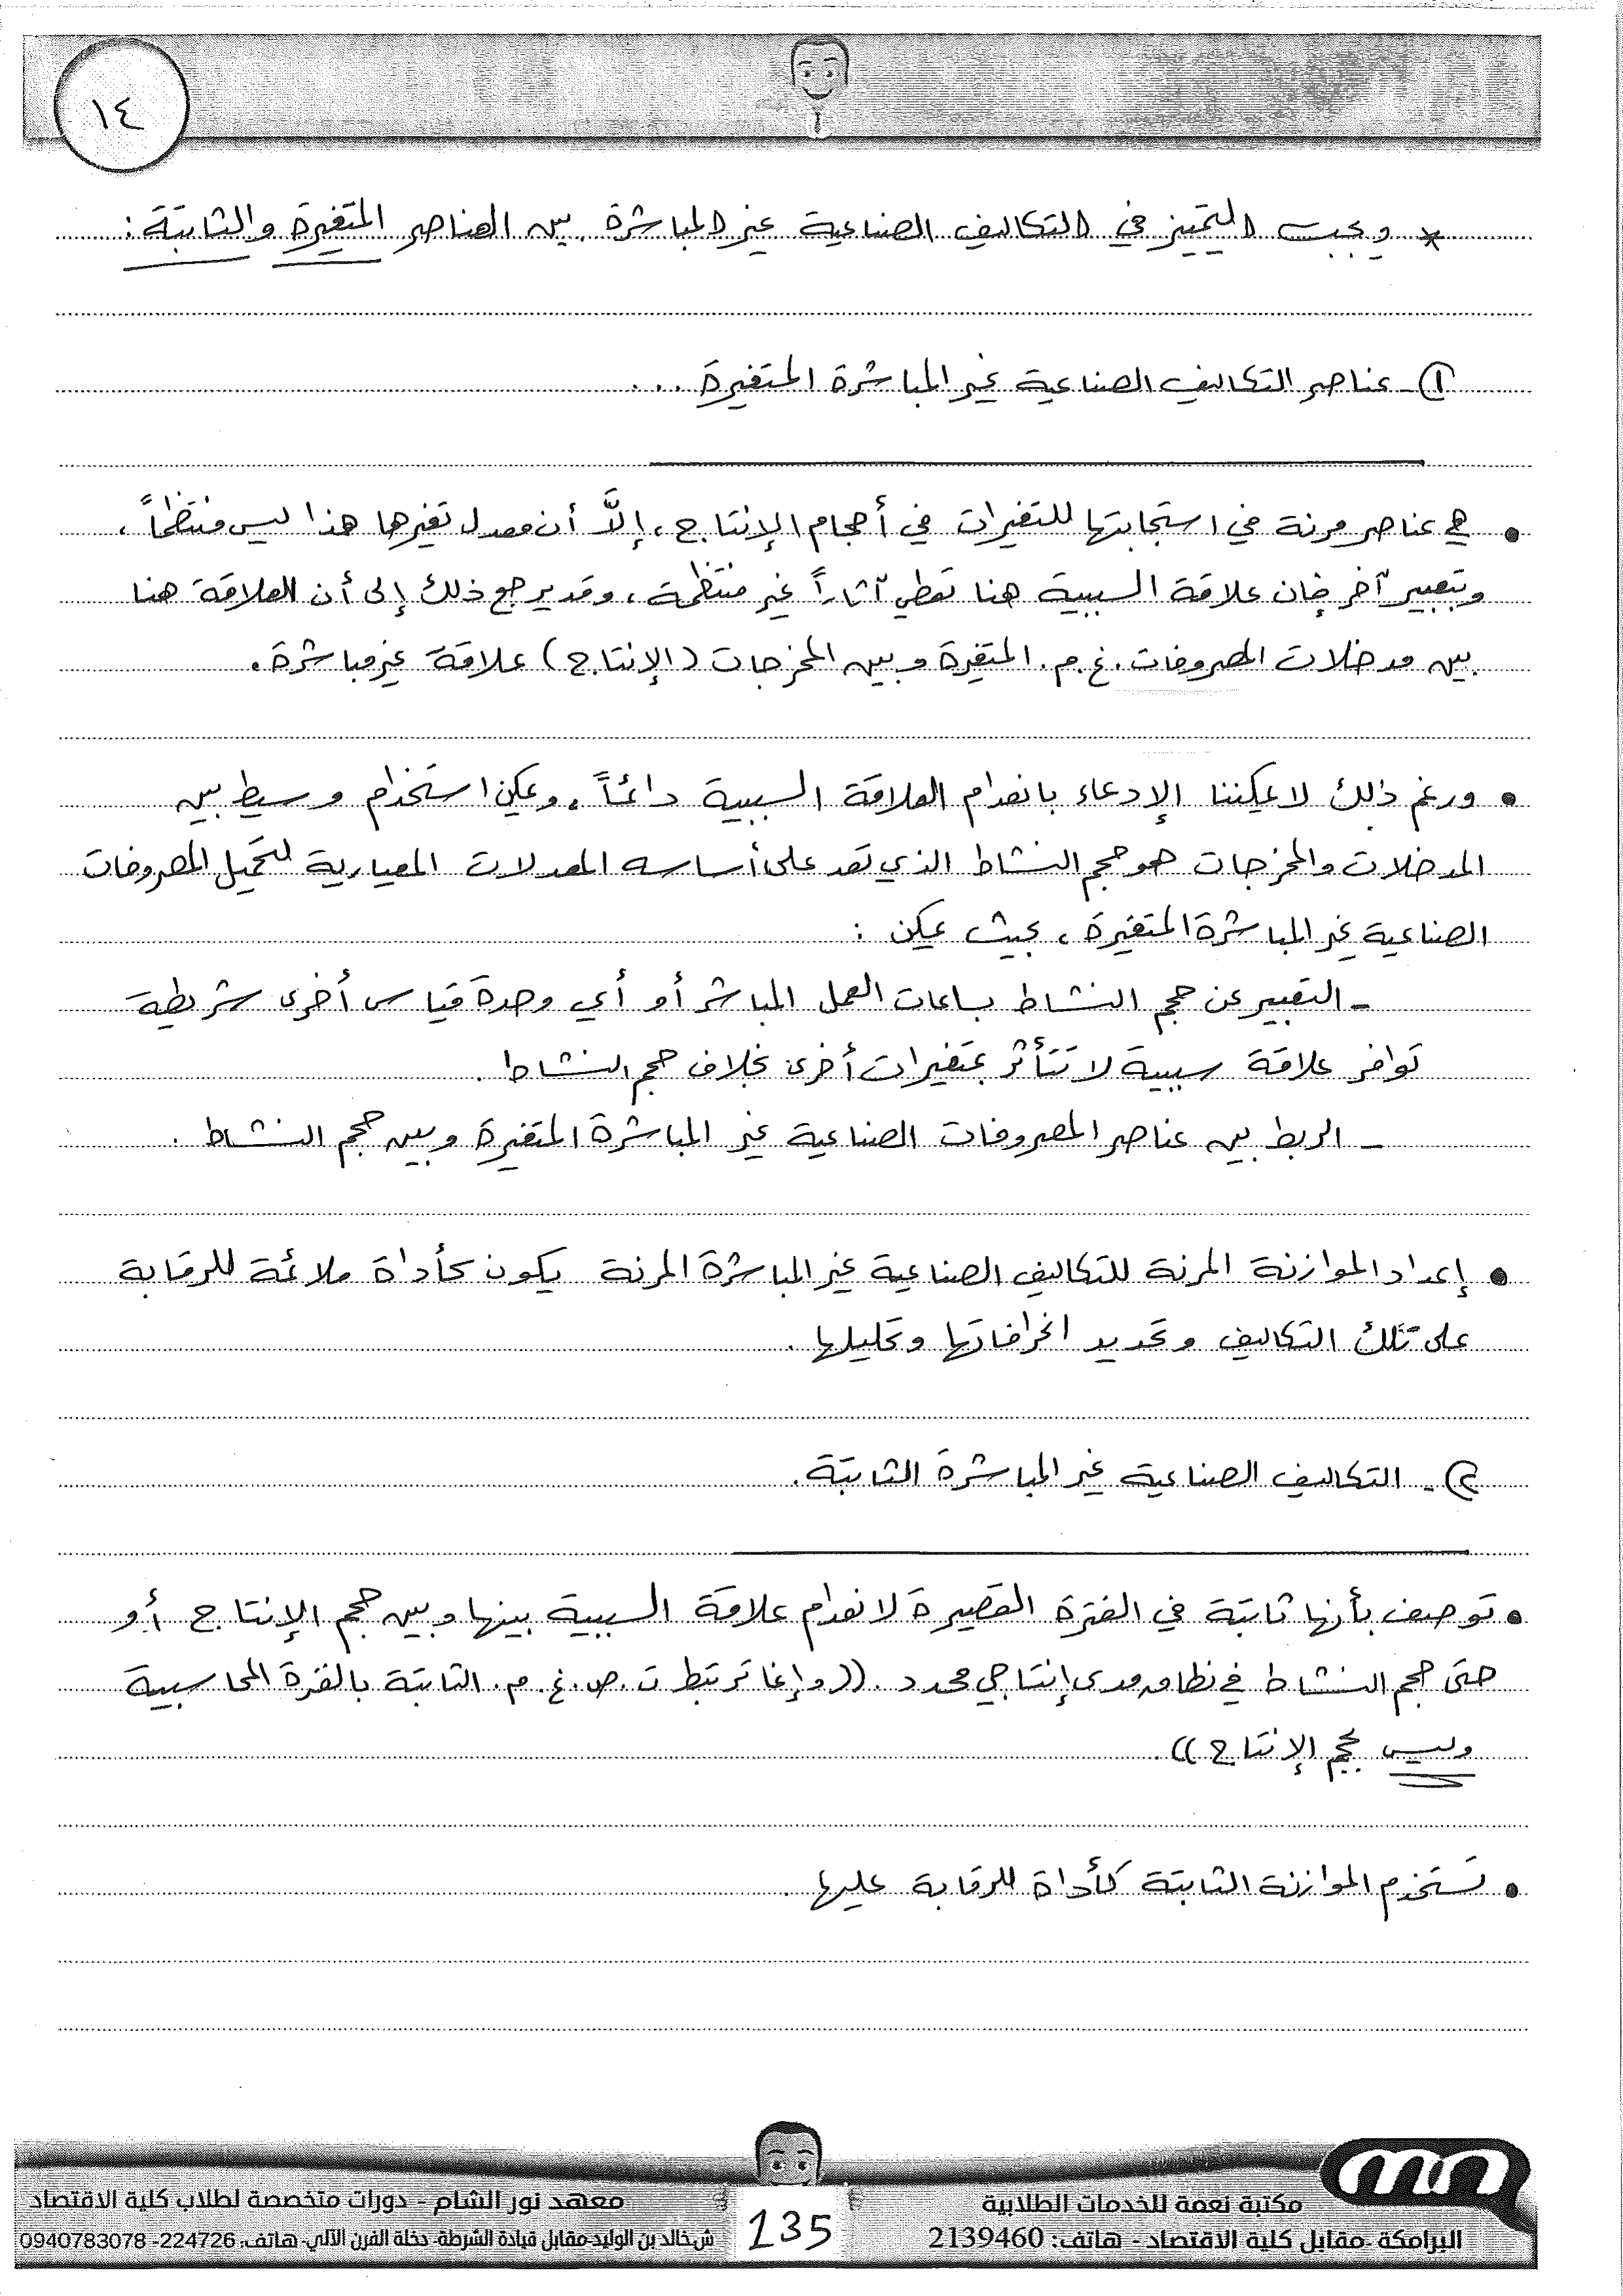 ١٤
* ويجب التمييز في التكاليف الصناعية غير المباشرة بين العناصر المتغيرة والثابتة :
١- عناصر التكاليف الصناعية غير المباشرة المتغيرة ...
• هي عناصر مرنة في استجابتها للتغيرات في أحجام الإنتاج ، إلَّا أن معدل تغيرها هذا ليس منتظماً ،
وبتعبير آخر فإن علاقة السببية هنا تعطي آثاراً غير منتظمة ، وقد يرجع ذلك إلى أن العلاقة هنا
بين مدخلات المصروفات . غ . م . المتغيرة وبين المخرجات (الإنتاج) علاقة غير مباشرة .
• ورغم ذلك لا يمكننا الإدعاء بانعدام العلاقة السببية دائماً . ويمكن استخدام وسيط بين
المدخلات والمخرجات هو حجم النشاط الذي تعد على أساسه المعدلات المعيارية لتحميل المصروفات
الصناعية غير المباشرة المتغيرة ، بحيث يمكن :
- التعبير عن حجم النشاط بساعات العمل المباشر أو أي وحدة قياس أخرى شريطة
توافر علاقة سببية لا تتأثر بمتغيرات أخرى بخلاف حجم النشاط .
- الربط بين عناصر المصروفات الصناعية غير المباشرة المتغيرة وبين حجم النشاط .
• إعداد الموازنة المرنة للتكاليف الصناعية غير المباشرة المرنة يكون كأداة ملائمة للرقابة
على تلك التكاليف وتحديد انحرافاتها وتحليلها .
٢- التكاليف الصناعية غير المباشرة الثابتة .
• توصف بأنها ثابتة في الفترة القصيرة لانعدام علاقة السببية بينها وبين حجم الإنتاج أو
حتى حجم النشاط في نطاق مدى إنتاجي محدد . ((وإنما ترتبط ت . ص . غ . م . الثابتة بالفترة المحاسبية
وليس بحجم الإنتاج)) .
• تستخدم الموازنة الثابتة كأداة للرقابة عليها .
مكتبة نعمة للخدمات الطلابية
البرامكة -مقابل كلية الاقتصاد - هاتف: 2139460
135
معهد نور الشام - دورات متخصصة لطلاب كلية الاقتصاد
ش.خالد بن الوليد-مقابل قيادة الشرطة- دخلة الفرن الآلي- هاتف: 224726- 0940783078